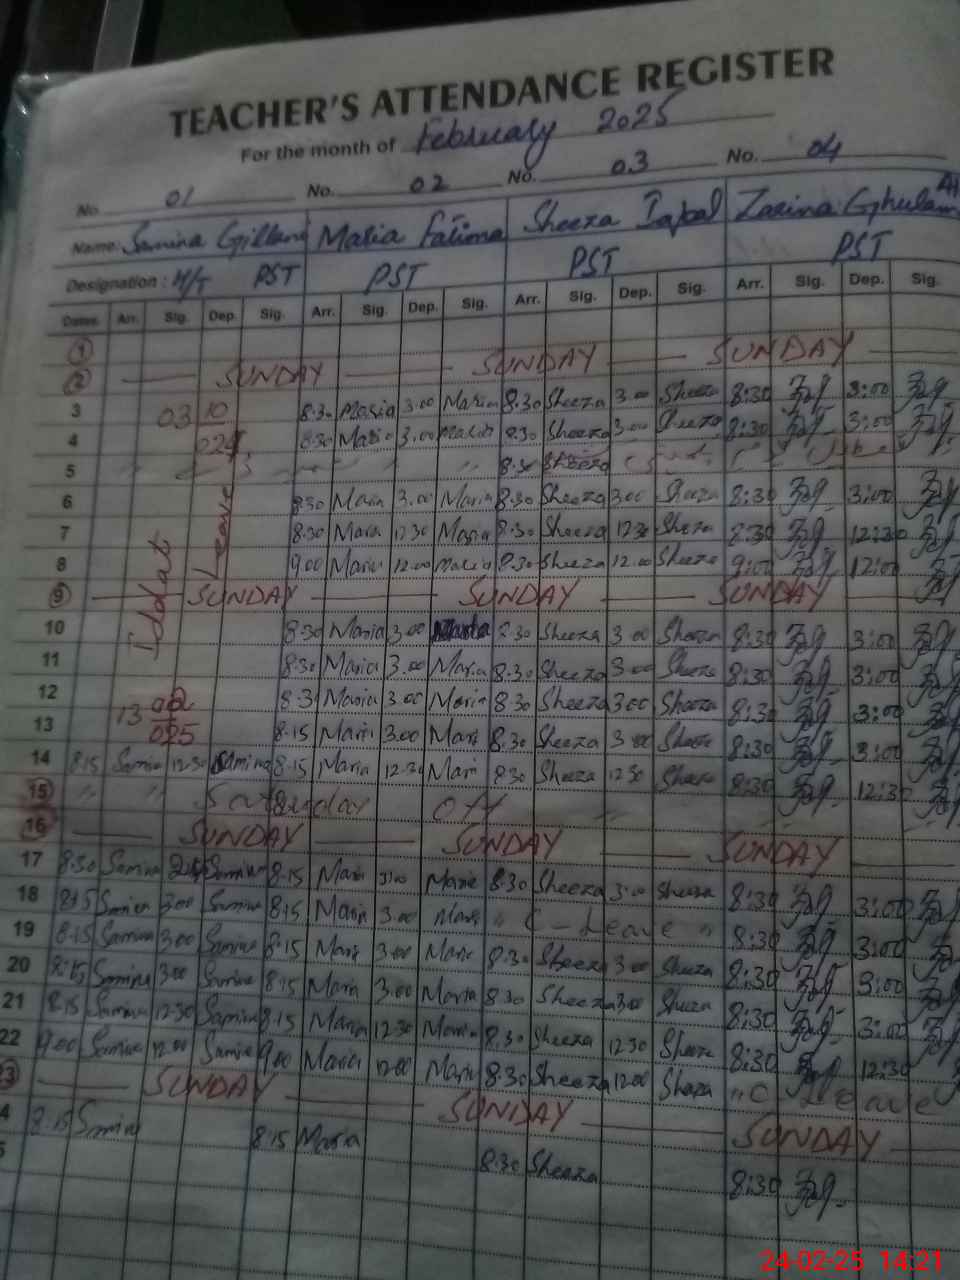 TEACHER'S ATTENDANCE REGISTER
For the month of February 2025
No. 01 No. 02 No. 03 No. 04
Name: Samina Gillani Maria Fatima Sheeza Iqbal Zarina Ghulam
Designation: H/T PST PST PST PST
Dates Arr. Sig. Dep. Sig. Arr. Sig. Dep. Sig. Arr. Sig. Dep. Sig. Arr. Sig. Dep. Sig.
1
2 SUNDAY SUNDAY SUNDAY
3 03 10 8:30 Maria 3.00 Maria 8.30 Sheeza 3.00 Sheeza 8:30 3:00
4 8:30 Maria 3.00 Maria 8.30 Sheeza 3.00 Sheeza 8:30 3:00
5 8:30 Sheeza
6 8:30 Maria 3.00 Maria 8:30 Sheeza 3.00 Sheeza 8:30 3:00
7 8:30 Maria 12.30 Maria 8:30 Sheeza 12.30 Sheeza 8:30 12:30
8 9.00 Maria 12.00 Maria 8.30 Sheeza 12.00 Sheeza 9:00 12:00
Iddat Leave
9 SUNDAY SUNDAY SUNDAY
10 8:30 Maria 3.00 Maria 8.30 Sheeza 3.00 Sheeza 8:30 3:00
11 8:30 Maria 3.00 Maria 8.30 Sheeza 3.00 Sheeza 8:30 3:00
12 8:3 Maria 3.00 Maria 8.30 Sheeza 3.00 Sheeza 8:30 3:00
13 13 02 025 8.15 Maria 3.00 Maria 8.30 Sheeza 3.00 Sheeza 8:30 3:00
14 8:15 Samina 12.30 Samina 8.15 Maria 12.30 Maria 8:30 Sheeza 12 30 Sheeza 8:30 12:30
15 Saturday Off
16 SUNDAY SUNDAY SUNDAY
17 8:30 Samina Samina 8.15 Maria 3:00 Maria 8.30 Sheeza 3:00 Sheeza 8:30 3:00
18 8:15 Samina 3.00 Samina 8:15 Maria 3.00 Maria " C-Leave " 8:30 3:00
19 8:15 Samina 3.00 Samina 8:15 Maria 3.00 Maria 8:30 Sheeza 3.00 Sheeza 8:30 3:00
20 8:15 Samina 3.00 Samina 8:15 Maria 3.00 Maria 8.30 Sheeza 3.00 Sheeza 8:30 3:00
21 8:15 Samina 12.30 Samina 8.15 Maria 12.30 Maria 8.30 Sheeza 12.30 Sheeza 8:30 12:30
22 9.00 Samina 12.00 Samina 9.00 Maria 12.00 Maria 8:30 Sheeza 12.00 Sheeza " C Leave
23 SUNDAY SUNDAY SUNDAY
4 8:15 Samina 8:15 Maria 8:30 Sheeza 8:30
5
24-02-25 14:21